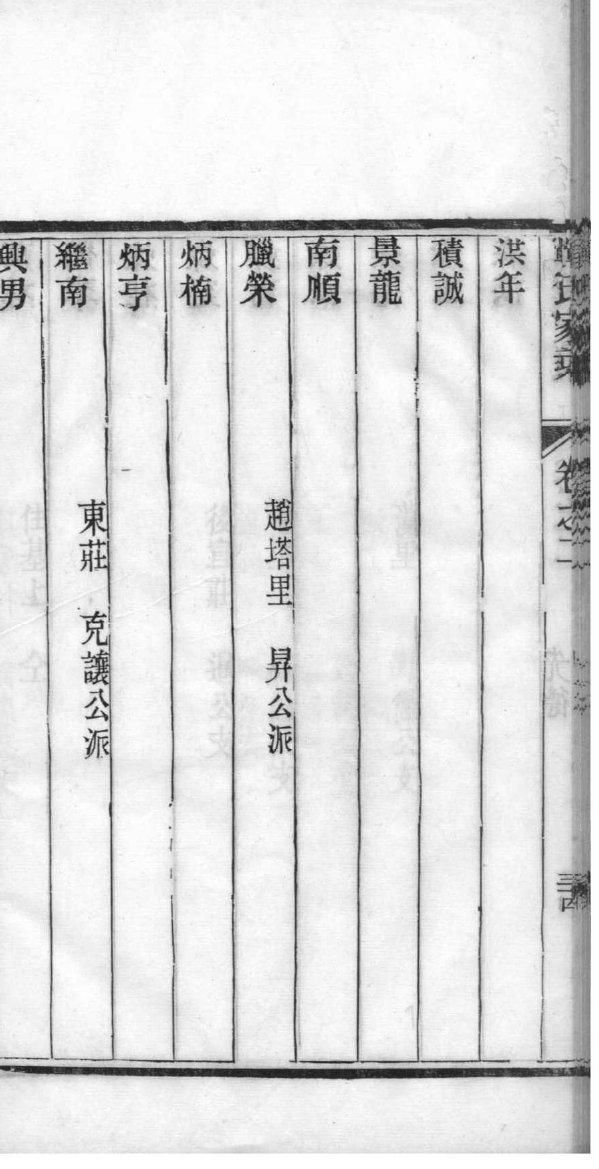 氏家 卷之二
洪年
積誠
景龍
南順
臘榮 趙塔里 昇公派
炳楠
炳亨
繼南 東莊 克讓公派
興男